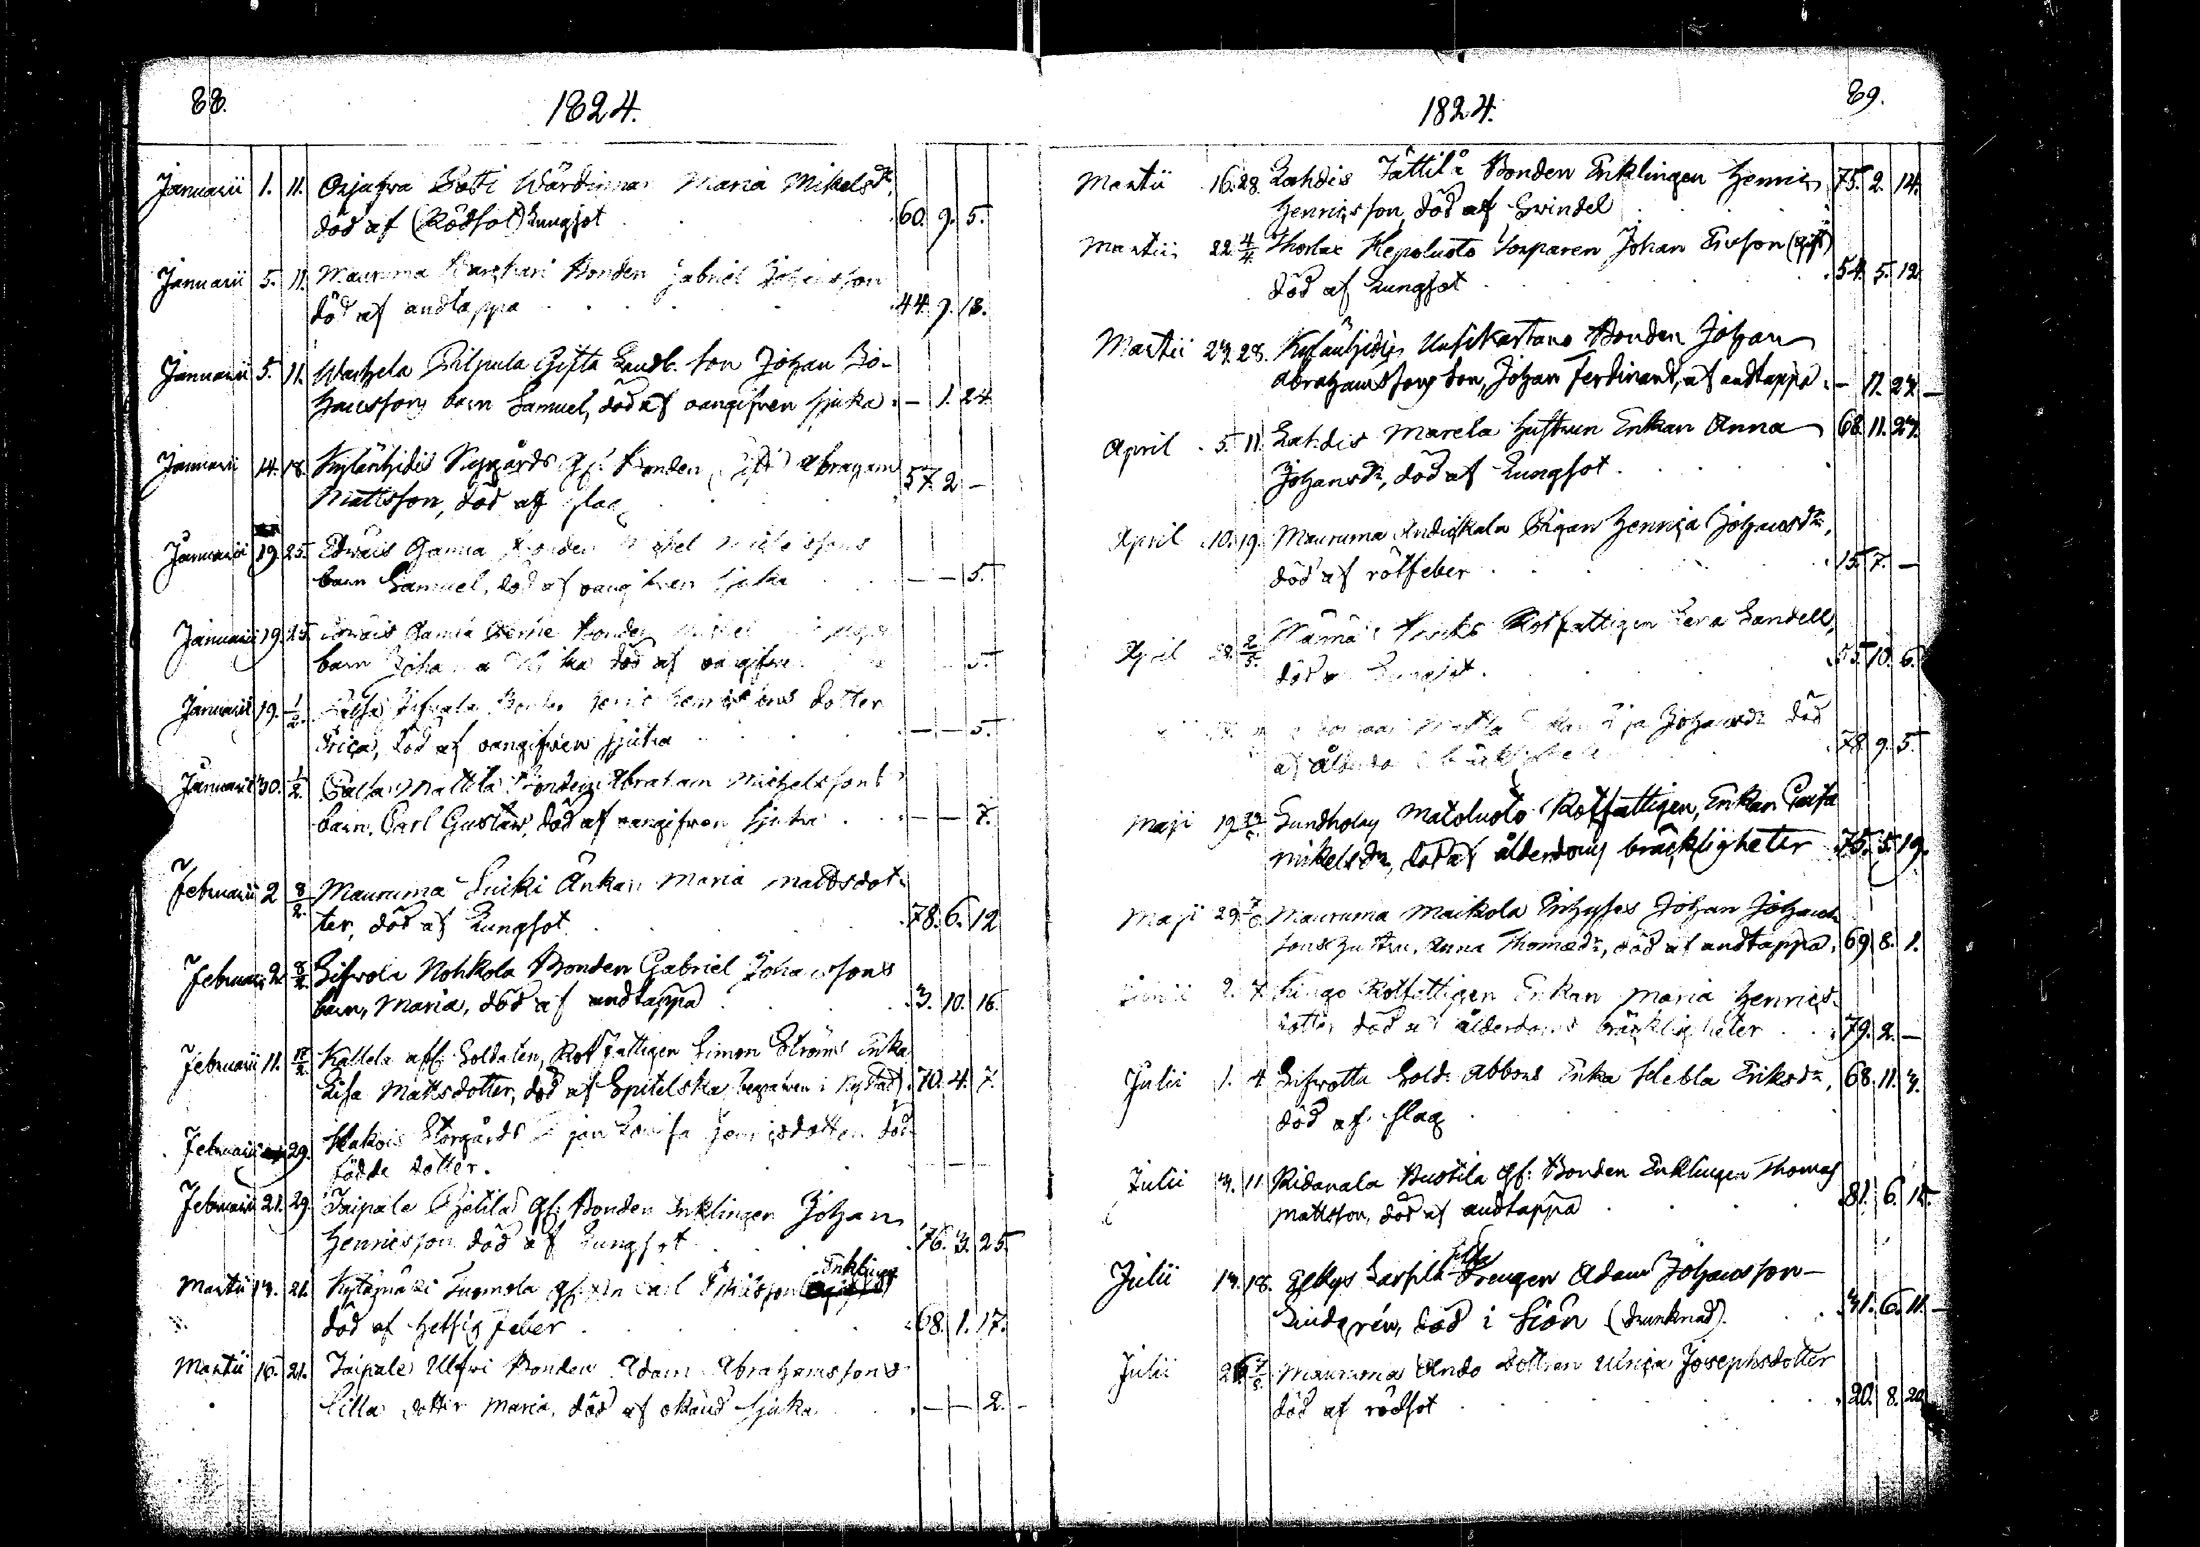 88. 1824.
Januarii 1. 11. Orjafva Potti Wärdinnan Maria Mikelsdr,
död af (Rödsot) Lungsot 60. 9. 5.
Januarii 5. 11. Mauruma Bonden Gabriel Johansson
död af andtäppa 44. 9. 18.
Januarii 5. 11. Warhela Pilpula Gifta Landb. son Johan Jo-
hanssons barn Samuel, död af oangifven sjuka. — 1. 24.
Januarii 14. 18. Kylänhidis Nygårds gf. Bonden Abraham
Mattsson, död af slag 57. 2 —
Januarii 19. 25. Edväis Gamla Bonden Mikel Mickelssons
barn Samuel, död af oangifven sjuka — — 5.
Januarii 19. 25. Edväis Gamla Bonden
barn död af oangifven — — 5.
Januarii 19. 1/2. Bonden Henric Henricssons dotter
Erica, död af oangifven sjuka — — 5.
Januarii 30. 1/2. Mattila Bonden Abraham Michelssons
barn, Carl Gustav, död af oangifven sjuka — — 7.
Februarii 2 8/2. Mauruma Luiki Änkan Maria Mattsdot-
ter, död af Lungsot 78. 6. 12
Februarii 2. 8/2. Sifvola Nohkola Bonden Gabriel Johanssons
barn, Maria, död af andtäppa 3. 10. 16.
Februarii 11. Kallela afsk. Soldaten, Rotfattigen Simon Ströms Enka
Lisa Mattsdotter, död af Spitelska, begrafven i Nystad 70. 4. 7.
Februarii 29. Hakois Storgårds Pigan Lovisa Henricsdotters död-
födde dotter. —
Februarii 21. 29. Taipale Gf. Bonden Enklingen Johan
Henricsson död af Lungsot 76. 3. 25.
Martii 13. 21. Kytämäki Tuomola gf. Carl Eriksson Enkling
död af Hetsig feber 68. 1. 17.
Martii 16. 21. Taipale Ulfvi Bonden Adam Abrahamssons
lilla dotter Maria, död af okänd sjuka — — 2.
1824. 89.
Martii 16. 28. Lahdis Tättilä Bonden Enklingen Henric 75. 2. 14.
Henricsson, död af Svindel
Martii 22. 4/4. Thorlax Kepoluoto Torparen Johan Ersson (gift)
död af Lungsot 54. 5. 12.
Martii 27. 28. Kylänhidis Uusikartano Bonden Johan
Abrahamssons son, Johan Ferdinand, af andtäppa — 11. 27. —
April 5. 11. Lahdis Marela Hustrun Enkan Anna 68. 11. 27.
Johansdr, död af Lungsot.
April 10. 19. Mauruma Andickala Pigan Henrica Johansdr,
död af rötfeber 15. 7. —
April 28. 2/5. Rotfattigen Sandell,
död af Lungsot. 55. 10. 6.
Johansdr död
af ålderdoms bräcklighet 78. 9. 5.
Maji 19 Sundholm Matoluoto Rotfattigen, Enkan
Mikelsdr, död af ålderdoms bräckligheter 75. 5. 19.
Maji 29. Mauruma Maikola Inhyses Johan Johans-
sons hustru, Anna Thomasdr, död af andtäppa, 69. 8. 1.
Junii 2. 7. Ringo Rotfattigen Enkan Maria Henrics-
dotter död af ålderdoms bräckligheter 79. 2. —
Julii 1. 4 Sifvottu Sold. Abbons Enka Hebla Eriksdr, 68. 11. 3.
död af slag
Julii 3. 11. Ridanala Bustila gf. Bonden Enklingen Thomas
Mattsson, död af andtäppa 81. 6. 15.
Julii 13. 18. Elkys Drengen Adam Johansson
Lindgrén, död i Siön (drunknad). 31. 6. 11.
Julii 26. Mauruma Ando Dottren Ulrica Josephsdotter
död af rödsot 20. 8. 20.